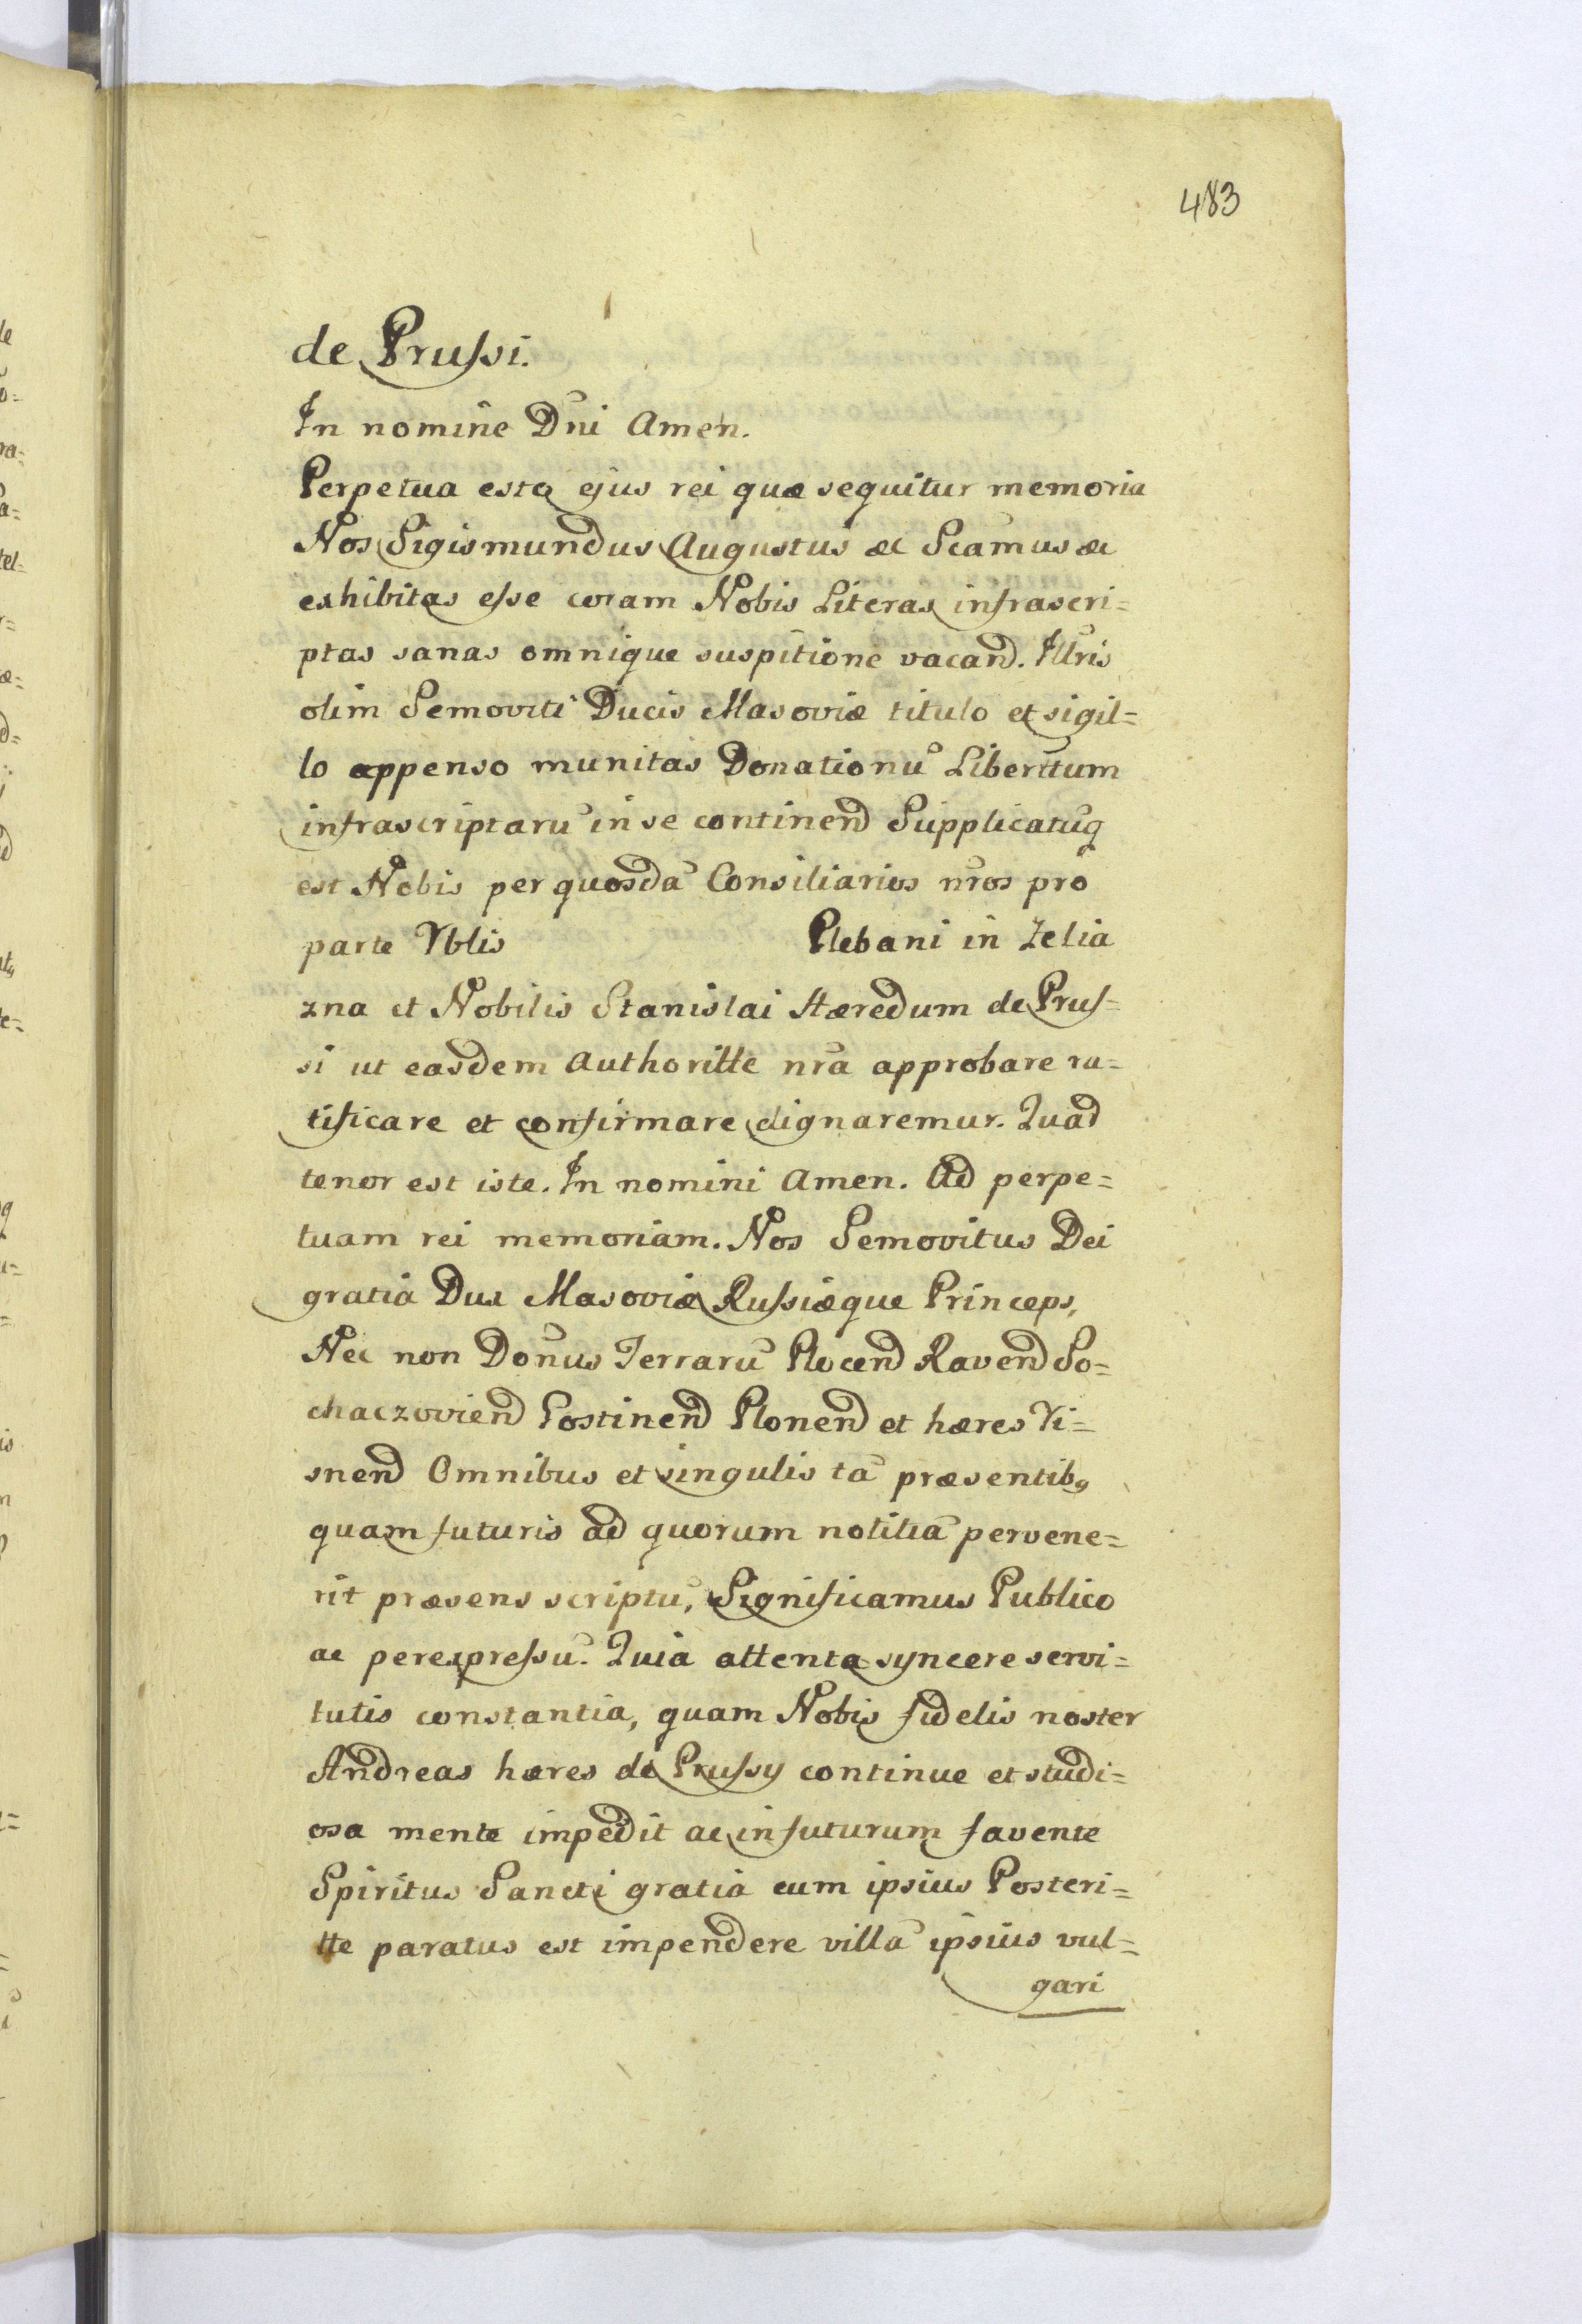 483
de Prussi.
In nomine Dni Amen.
Perpetua esto ejus rei quæ sequitur memoria
Nos Sigismundus Augustus &c Scamus &c
exhibitas esse coram Nobis Literas infrascri=
ptas sanas omnique suspitione vacand. Illris
olim Semoviti Ducis Masoviæ titulo et sigil=
lo appenso munitas Donationū Libertum
infrascriptarū in se continend Supplicatuq
est Nobis per quosdā Consiliarios nros pro
parte Vblis Plebani in Zelia
zna et Nobilis Stanislai Hæredum de Prus=
si ut easdem Authoritte nra approbare ra=
tificare et confirmare dignaremur. Quad
tenor est iste. In nomini Amen. Ad perpe=
tuam rei memoriam. Nos Semovitus Dei
gratia Dux Masoviæ Russiæque Princeps,
Nec non Donus Terrarū Plocend Ravend So=
chaczoviend Gostinend Plonend et hæres Vi=
snend Omnibus et singulis tā præsentibq
quam futuris ad quorum notitiā pervene=
rit præsens scriptū, Significamus Publico
ac perexpressū. Quia attenta syncere servi=
tutis constantia, quam Nobis fidelis noster
Andreas hæres de Prussy continue et studi=
osa mente impedit ac in futurum favente
Spiritus Sancti gratia cum ipsius Posteri=
tte paratus est impendere villā ipsius vul=
gari